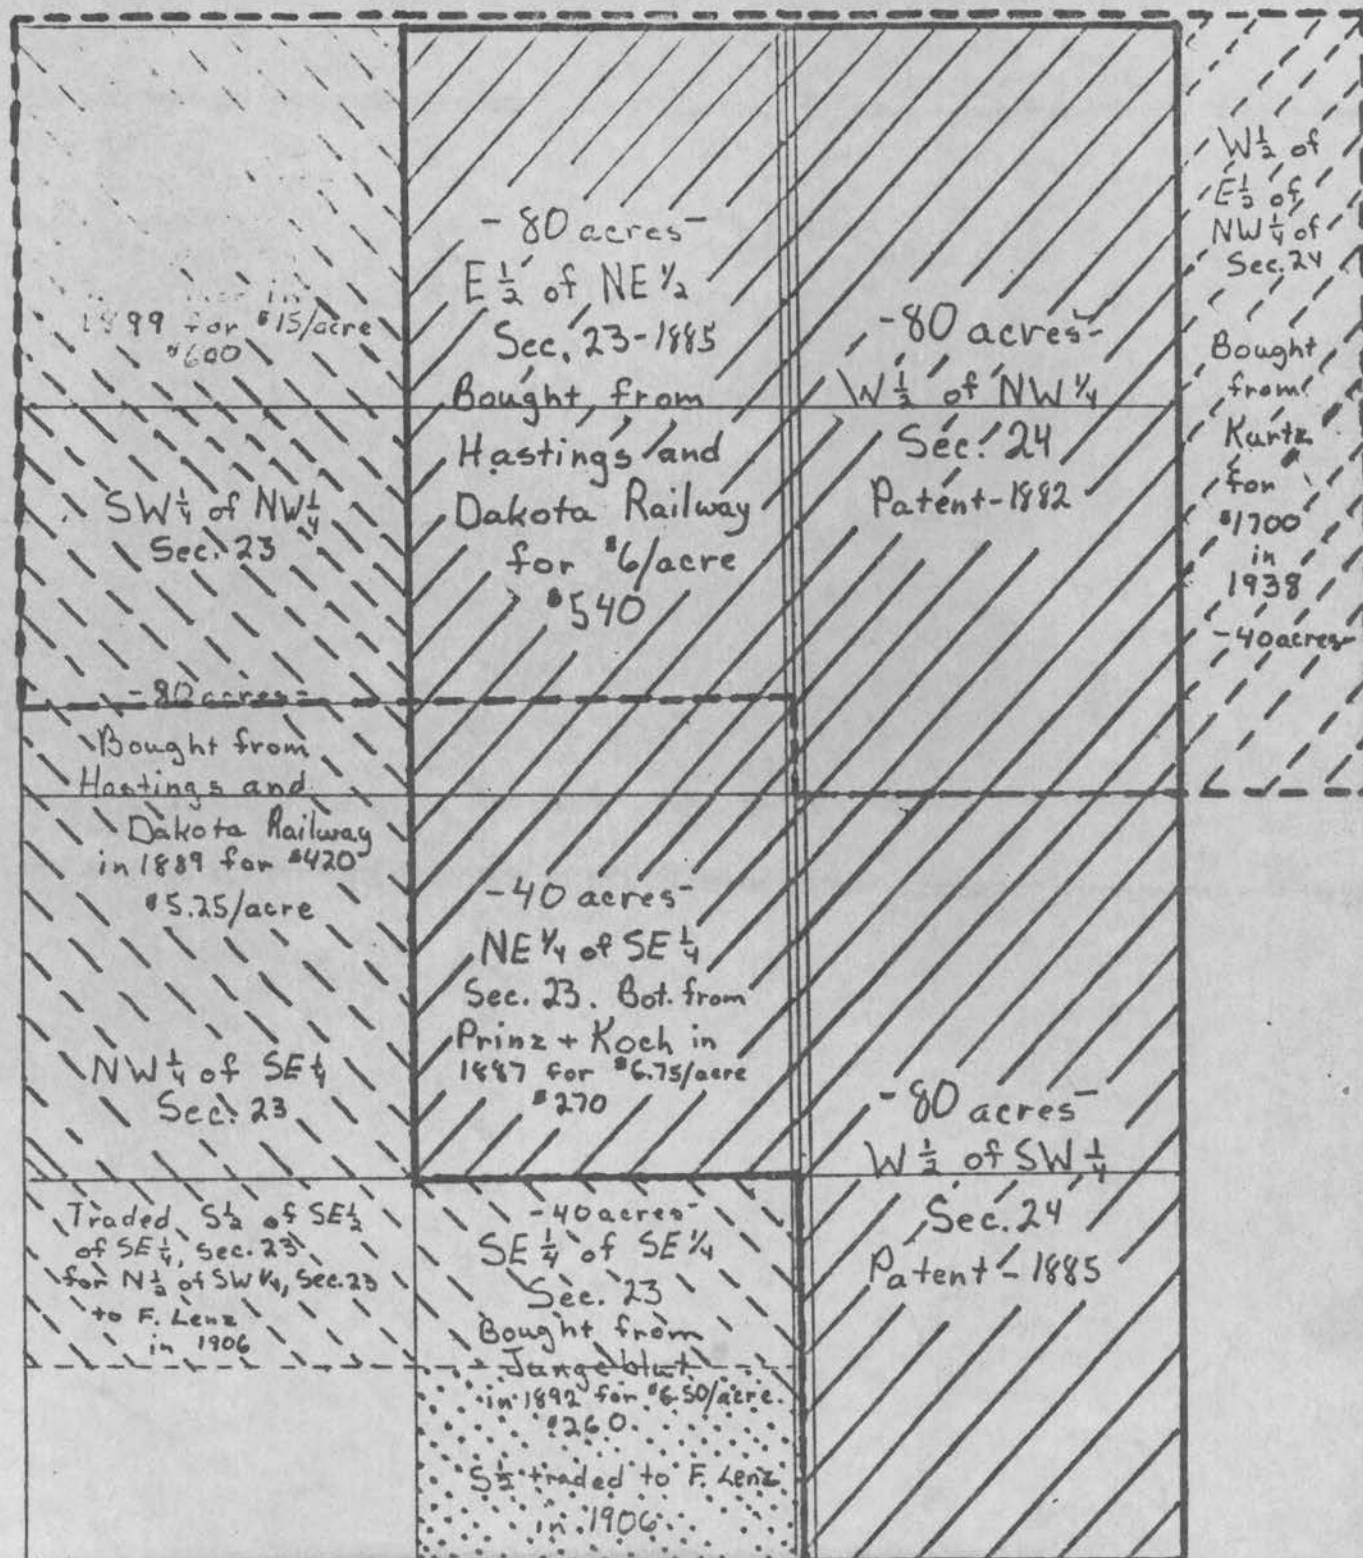 in
1899 for $15/acre
$600
SW¼ of NW¼
Sec. 23
-80 acres-
Bought from
Hastings and
Dakota Railway
in 1889 for $420
$5.25/acre
NW¼ of SE¼
Sec. 23
Traded S½ of SE½
of SE¼, Sec. 23
for N½ of SW¼, Sec. 23
to F. Lenz
in 1906
-80 acres-
E½ of NE½
Sec. 23-1885
Bought from
Hastings and
Dakota Railway
for $6/acre
$540
-40 acres-
NE¼ of SE¼
Sec. 23. Bot. from
Prinz + Koch in
1887 for $6.75/acre
$270
-40 acres-
SE¼ of SE¼
Sec. 23
Bought from
Jungeblut
in 1892 for $6.50/acre.
$260.
S½ traded to F. Lenz
in 1906
-80 acres-
W½ of NW¼
Sec. 24
Patent-1882
-80 acres-
W½ of SW¼
Sec. 24
Patent-1885
W½ of
E½ of
NW¼ of
Sec. 24
Bought
from
Kurtz
for
$1700
in
1938
-40 acres-